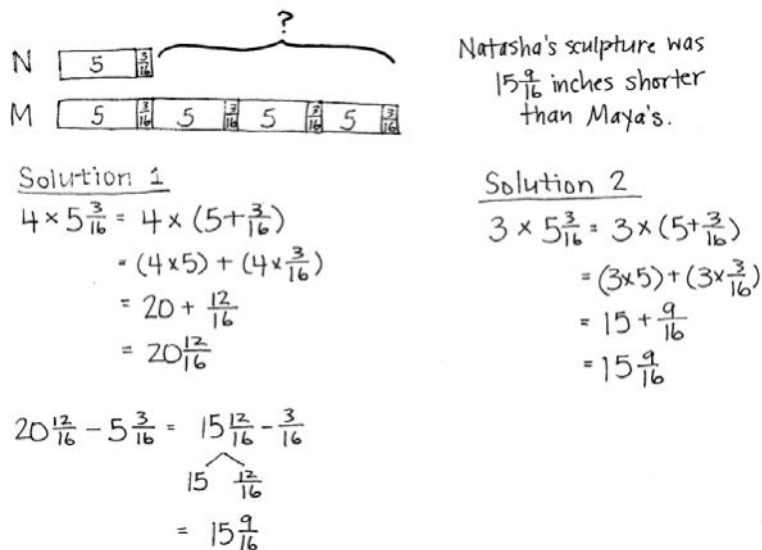 ?
N 5 3/16
M 5 3/16 5 3/16 5 3/16 5 3/16
Natasha's sculpture was
15 9/16 inches shorter
than Maya's.
Solution 1
4 × 5 3/16 = 4 × (5 + 3/16)
= (4 × 5) + (4 × 3/16)
= 20 + 12/16
= 20 12/16
20 12/16 − 5 3/16 = 15 12/16 − 3/16
15 12/16
= 15 9/16
Solution 2
3 × 5 3/16 = 3 × (5 + 3/16)
= (3 × 5) + (3 × 3/16)
= 15 + 9/16
= 15 9/16